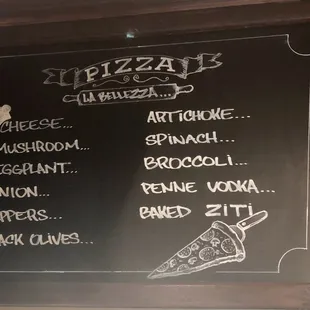 PIZZA
LA BELLEZZA...
CHEESE...
MUSHROOM...
EGGPLANT...
NION...
PPERS...
ACK OLIVES...
ARTICHOKE...
SPINACH...
BROCCOLI...
PENNE VODKA...
BAKED ZITI